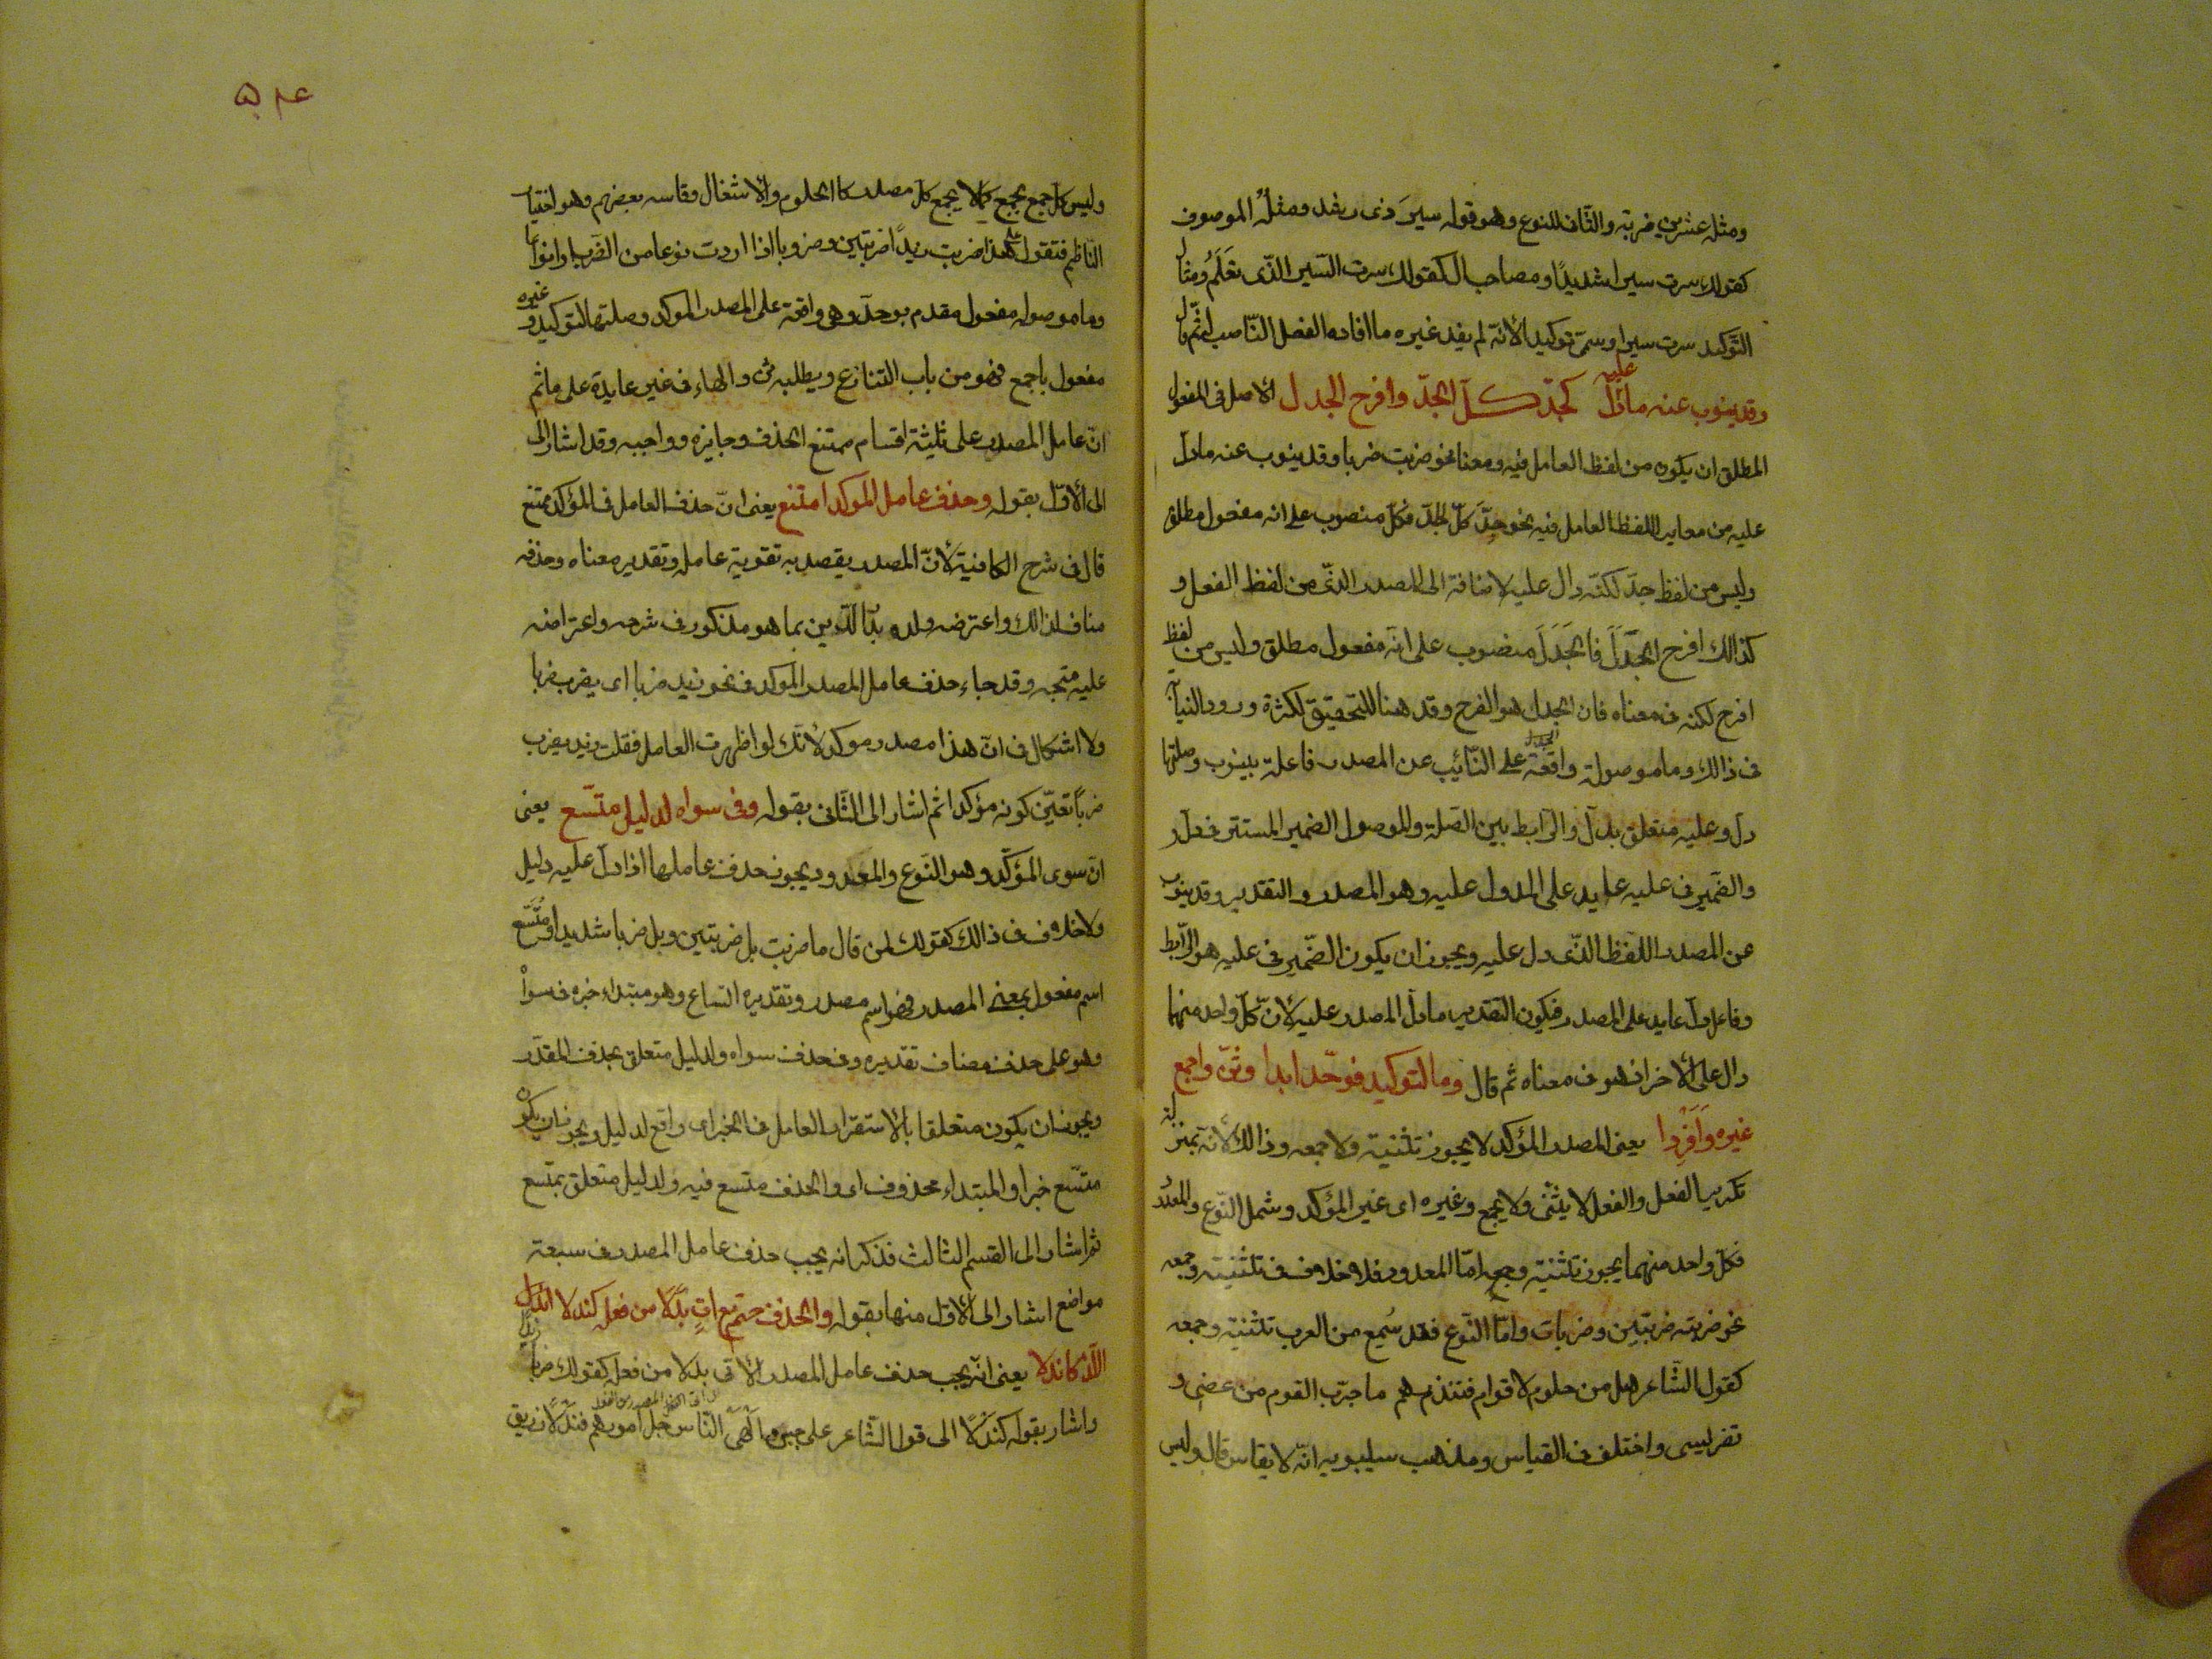 ومثله عشرين ضربة والثانى للنوع وهو قوله سير ذى رشد ومثله الموصوف
كقولك سرت سيرا شديدا ومصاحب ال كقولك سرت السّير الذّى تعلم ومثال
التّوكيد سرت سيرا وسمى توكيدا لأنّه لم يفد غيره ما افاده الفعل النّاصب له ثم قال
وقد ينوب عنه ما عليه دلّ كجدّ كلّ الجدّ وافرح الجدل الاصل فى المفعول
المطلق ان يكون من لفظ العامل فيه ومعناه نحو ضربت ضربا وقد ينوب عنه ما دلّ
عليه من مغاير اللفظ العامل فيه نحو جدّ كلّ الجدّ فكلّ منصوب على انه مفعول مطلق
وليس من لفظ جدّ لكنّه دال عليه لاضافته الى المصدر الذّى من لفظ الفعل و
كذالك افرح الجدل فالجدل منصوب على انّه مفعول مطلق وليس من لفظ
افرح لكنه فى معناه فان الجدل هو الفرح وقد هنا للتحقيق لكثرة ورود النيابة
فى ذالك وما موصولة واقعة على النّائب عن المصدر فاعلة بينوب وصلتها
دل وعليه متعلق بدلّ والرّابط بين الصّلة والموصول الضمير المستتر فى دلّ
والضّمير فى عليه عايد على المدول عليه وهو المصدر والتقدير وقد ينوب
عن المصدر اللفظ الذّى دل عليه ويجوز ان يكون الضّمير فى عليه هو الرّابط
وفاعل دلّ عايد على المصدر فيكون التّقدير ما دلّ المصدر عليه لأنّ كلّ واحد منهما
دال على الأخر اذ هو فى معناه ثم قال وما لتوكيد فوحّد ابدا وثنّ واجمع
غيره وافردا يعنى المصدر المؤكد لا يجوز تثنيته ولا جمعه وذالك لأنّه بمنزلة
تكرير الفعل والفعل لا يثنّى ولا يجمع وغيره اى غير المؤكد وشمل النّوع والمعدود
فكلّ واحد منهما يجوز تثنيته وجمعه امّا المعدود فلا خلاف فى تثنيته وجمعه
نحو ضربته ضربتين وضربات وامّا النّوع فقد سمع من العرب تثنيته وجمعه
كقول الشّاعر هل من حلوم لاقوام فتنذرهم ما جرّب القوم من عضى و
تضريسى واختلف فى القياس ومذهب سيبويه انّه لا يقاس قال وليس
وليس كلّ جمع يجمع كما لا يجمع كلّ مصدر كالحلوم والأشغال وقاسه بعضهم وهو اختيار
النّاظم فتقول على هذا ضربت زيدًا ضربتين وضروبا اذا اردت نوعا من الضّرب او انواعا
وما موصولة مفعول مقدم بوحّد وهى واقعة على المصدر المؤكد وصلتها لتوكيد وغيره
مفعول باجمع فهو من باب التنازع ويطلبه ثن والهاء فى غيره عايدة على ما ثم
انّ عامل المصدر على ثلثة اقسام ممتنع الحذف وجايزه وواجبه وقد اشار الى
الى الأوّل بقوله وحذف عامل المؤكد امتنع يعنى انّ حذف العامل فى المؤكد ممتنع
قال فى شرح الكافية لأنّ المصدر يقصد به تقوية عامله وتقدير معناه وحذفه
مناف لذالك واعترضه ولده بدر الدّين بما هو مذكور فى شرحه واعتراضه
عليه متجه وقد جاء حذف عامل المصدر المؤكد فى نحو زيد ضربا اى يضرب ضربا
ولا اشكال فى انّ هذا مصدر موكد لأنّك لو اظهرت العامل فقلت زيد يضرب
ضرباً تعيّن كونه مؤكدا ثم اشار الى الثّانى بقوله وفى سواه لدليل متّسع يعنى
انّ سوى المؤكّد وهو النّوع والمعدود يجوز حذف عاملها اذا دلّ عليه دليل
ولا خلاف فى ذالك كقولك لمن قال ما ضربت بل ضربتين وبل ضربا شديدا ومتّسع
اسم مفعول بمعنى المصدر فهو اسم مصدر وتقديره اتساع وهو مبتداء خبره فى سواه
وهو على حذف مضاف تقديره وفى حذف سواه ولدليل متعلق بحذف المقدّر
ويجوز ان يكون متعلقا بالأستقرار العامل فى الخبر اى واقع لدليل ويجوز ان يكون
متّسع خبرا والمبتداء محذوف اى والحذف متسع فيه ولدليل متعلق بمتسع
ثم اشار الى القسم الثالث فذكر انه يجب حذف عامل المصدر فى سبعة
مواضع اشار الى الأوّل منها بقوله والحذف حتم مع اتٍ بدلاً من فعله كندلا
اللّذ كاندلا يعنى انّه يجب حذف عامل المصدر الأتى بدلا من فعله كقولك ضربا زيدًا
واشار بقوله كندلاً الى قول الشّاعر على حين الهى النّاس جلّ امورهم فندلاً زريق